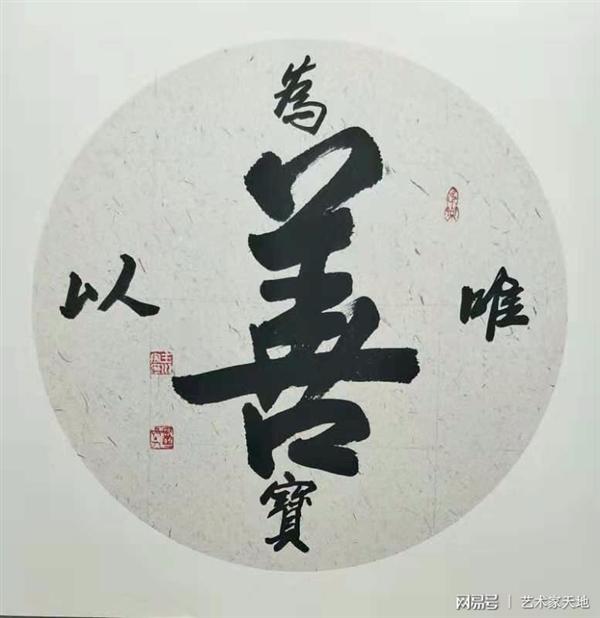 為
唯善以
寶
网易号 | 艺术家天地